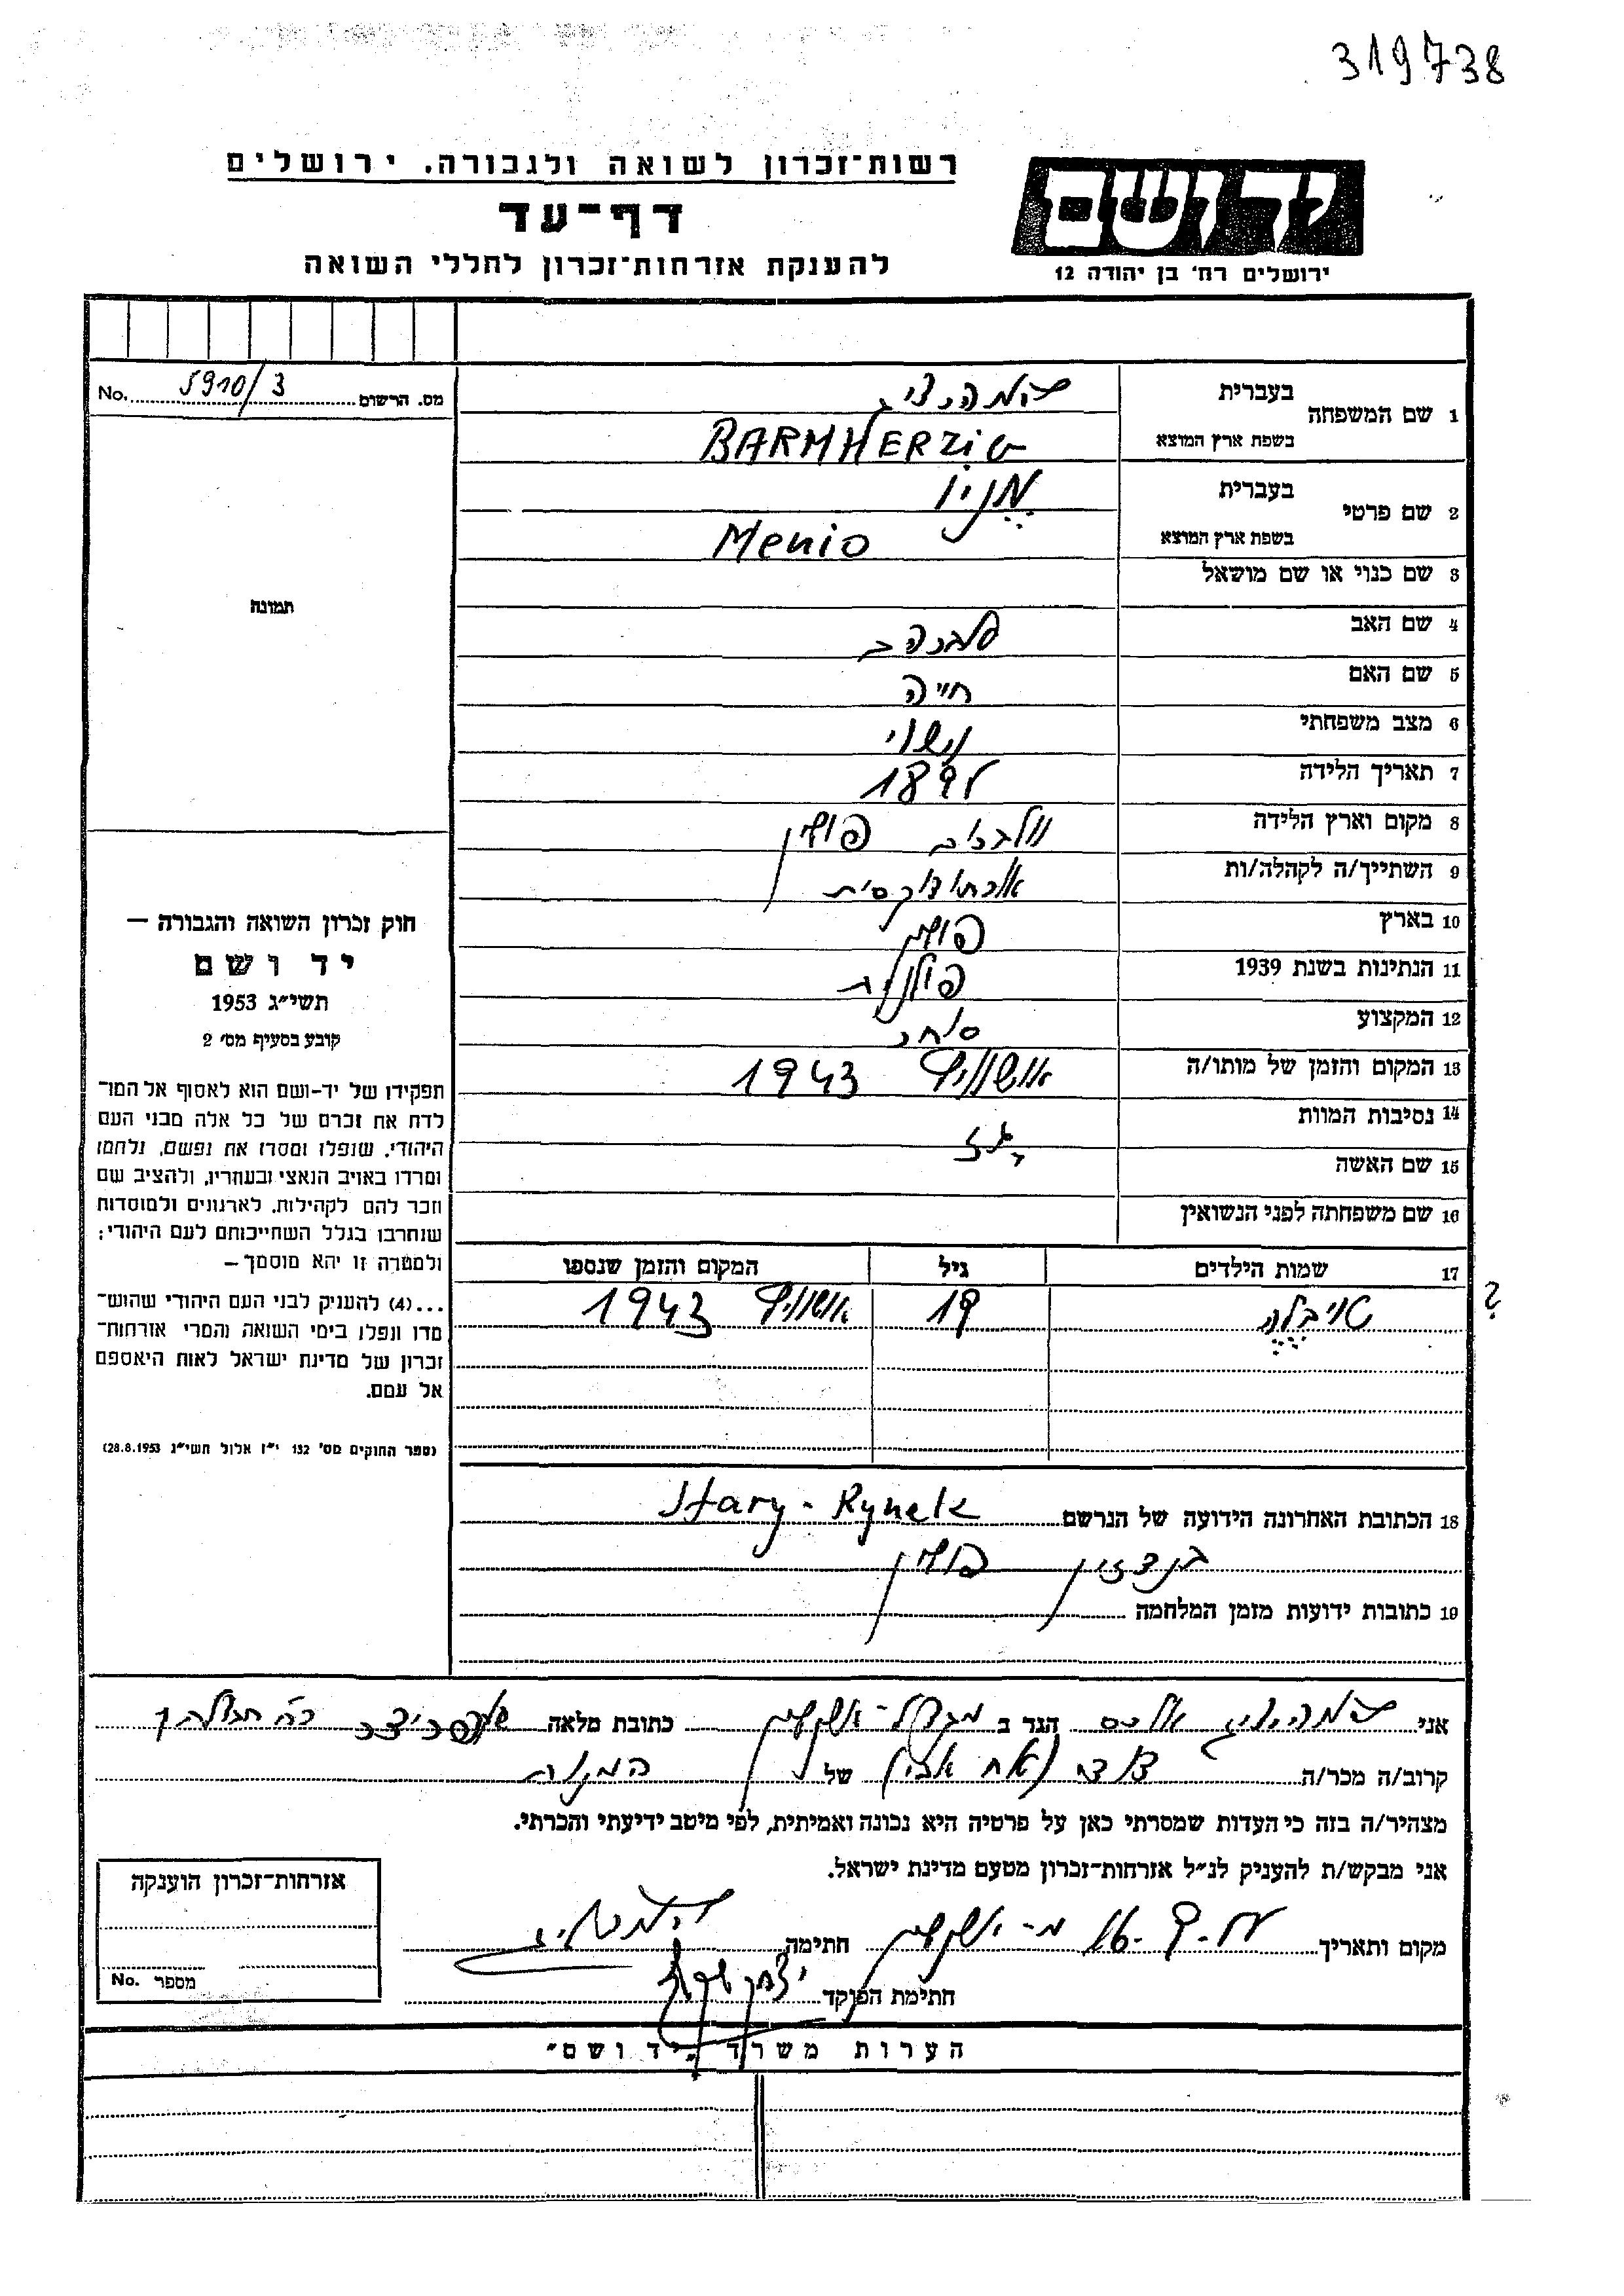 319738
רשות־זכרון לשואה ולגבורה. ירושלים
דף־עד
להענקת אזרחות־זכרון לחללי השואה
יד ושם
ירושלים רח׳ בן יהודה 12
No. 5910/3 מס. הרשום
1 שם המשפחה
בעברית
בשפת ארץ המוצא BARMHERZIG
2 שם פרטי
בעברית מניו
בשפת ארץ המוצא Menio
3 שם כנוי או שם מושאל
4 שם האב
5 שם האם חייה
6 מצב משפחתי נשוי
7 תאריך הלידה
8 מקום וארץ הלידה וולברום פולין
9 השתייך/ה לקהלה/ות אורתודוקסית
10 בארץ פולין
11 הנתינות בשנת 1939 פולנית
12 המקצוע סוחר
13 המקום והזמן של מותו/ה אושוויץ 1943
14 נסיבות המוות
15 שם האשה
16 שם משפחתה לפני הנשואין
17 שמות הילדים גיל המקום והזמן שנספו
טויבלה 19 אושוויץ 1943
?
18 הכתובת האחרונה הידועה של הנרשם Stary - Rynek
בנדזין פולין
19 כתובות ידועות מזמן המלחמה
תמונה
חוק זכרון השואה והגבורה –
יד ושם
תשי״ג 1953
קובע בסעיף מס׳ 2
תפקידו של יד-ושם הוא לאסוף אל המו־
לדת את זכרם של כל אלה מבני העם
היהודי, שנפלו ומסרו את נפשם, נלחמו
ומרדו באויב הנאצי ובעוזריו, ולהציב שם
וזכר להם לקהילות, לארגונים ולמוסדות
שנחרבו בגלל השתייכותם לעם היהודי;
ולמטרה זו יהא מוסמך –
...(4) להעניק לבני העם היהודי שהוש־
מדו ונפלו בימי השואה והמרי אזרחות־
זכרון של מדינת ישראל לאות היאספם
אל עמם.
(ספר החוקים מס׳ 132 י״ז אלול תשי״ג 28.8.1953)
אני הגר ב מגדל-אשקלון כתובת מלאה
קרוב/ה מכר/ה דוד (אח אבי) של המנוח
מצהיר/ה בזה כי העדות שמסרתי כאן על פרטיה היא נכונה ואמיתית, לפי מיטב ידיעתי והכרתי.
אני מבקש/ת להעניק לנ״ל אזרחות-זכרון מטעם מדינת ישראל.
מקום ותאריך מ-אשקלון חתימה
חתימת הפוקד
אזרחות-זכרון הוענקה
No. מספר
הערות משרד „יד ושם״